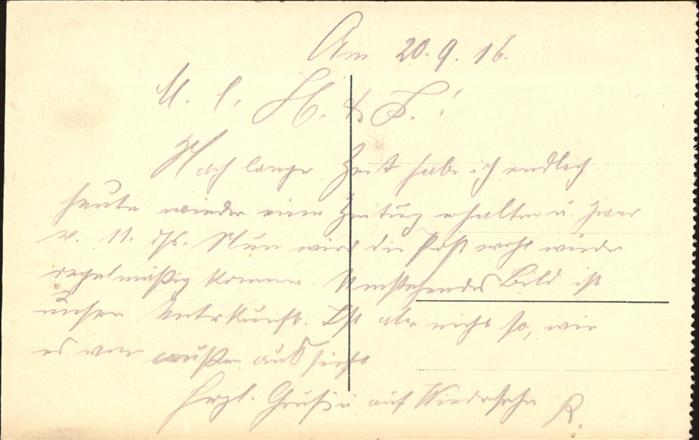 Am 20.9.16.
M. l. H. & L.!
Nach lange Zeit habe ich endlich
heute wieder eine Zeitung erhalten u. zwar
v. 11. ds. Nun wird die Post wohl wieder
regelmäßig kommen. Umstehendes Bild ist
unsere Unterkunft. Ist aber nicht so, wie
es von außen aussieht
Herzl. Grüße auf Wiedersehn R.